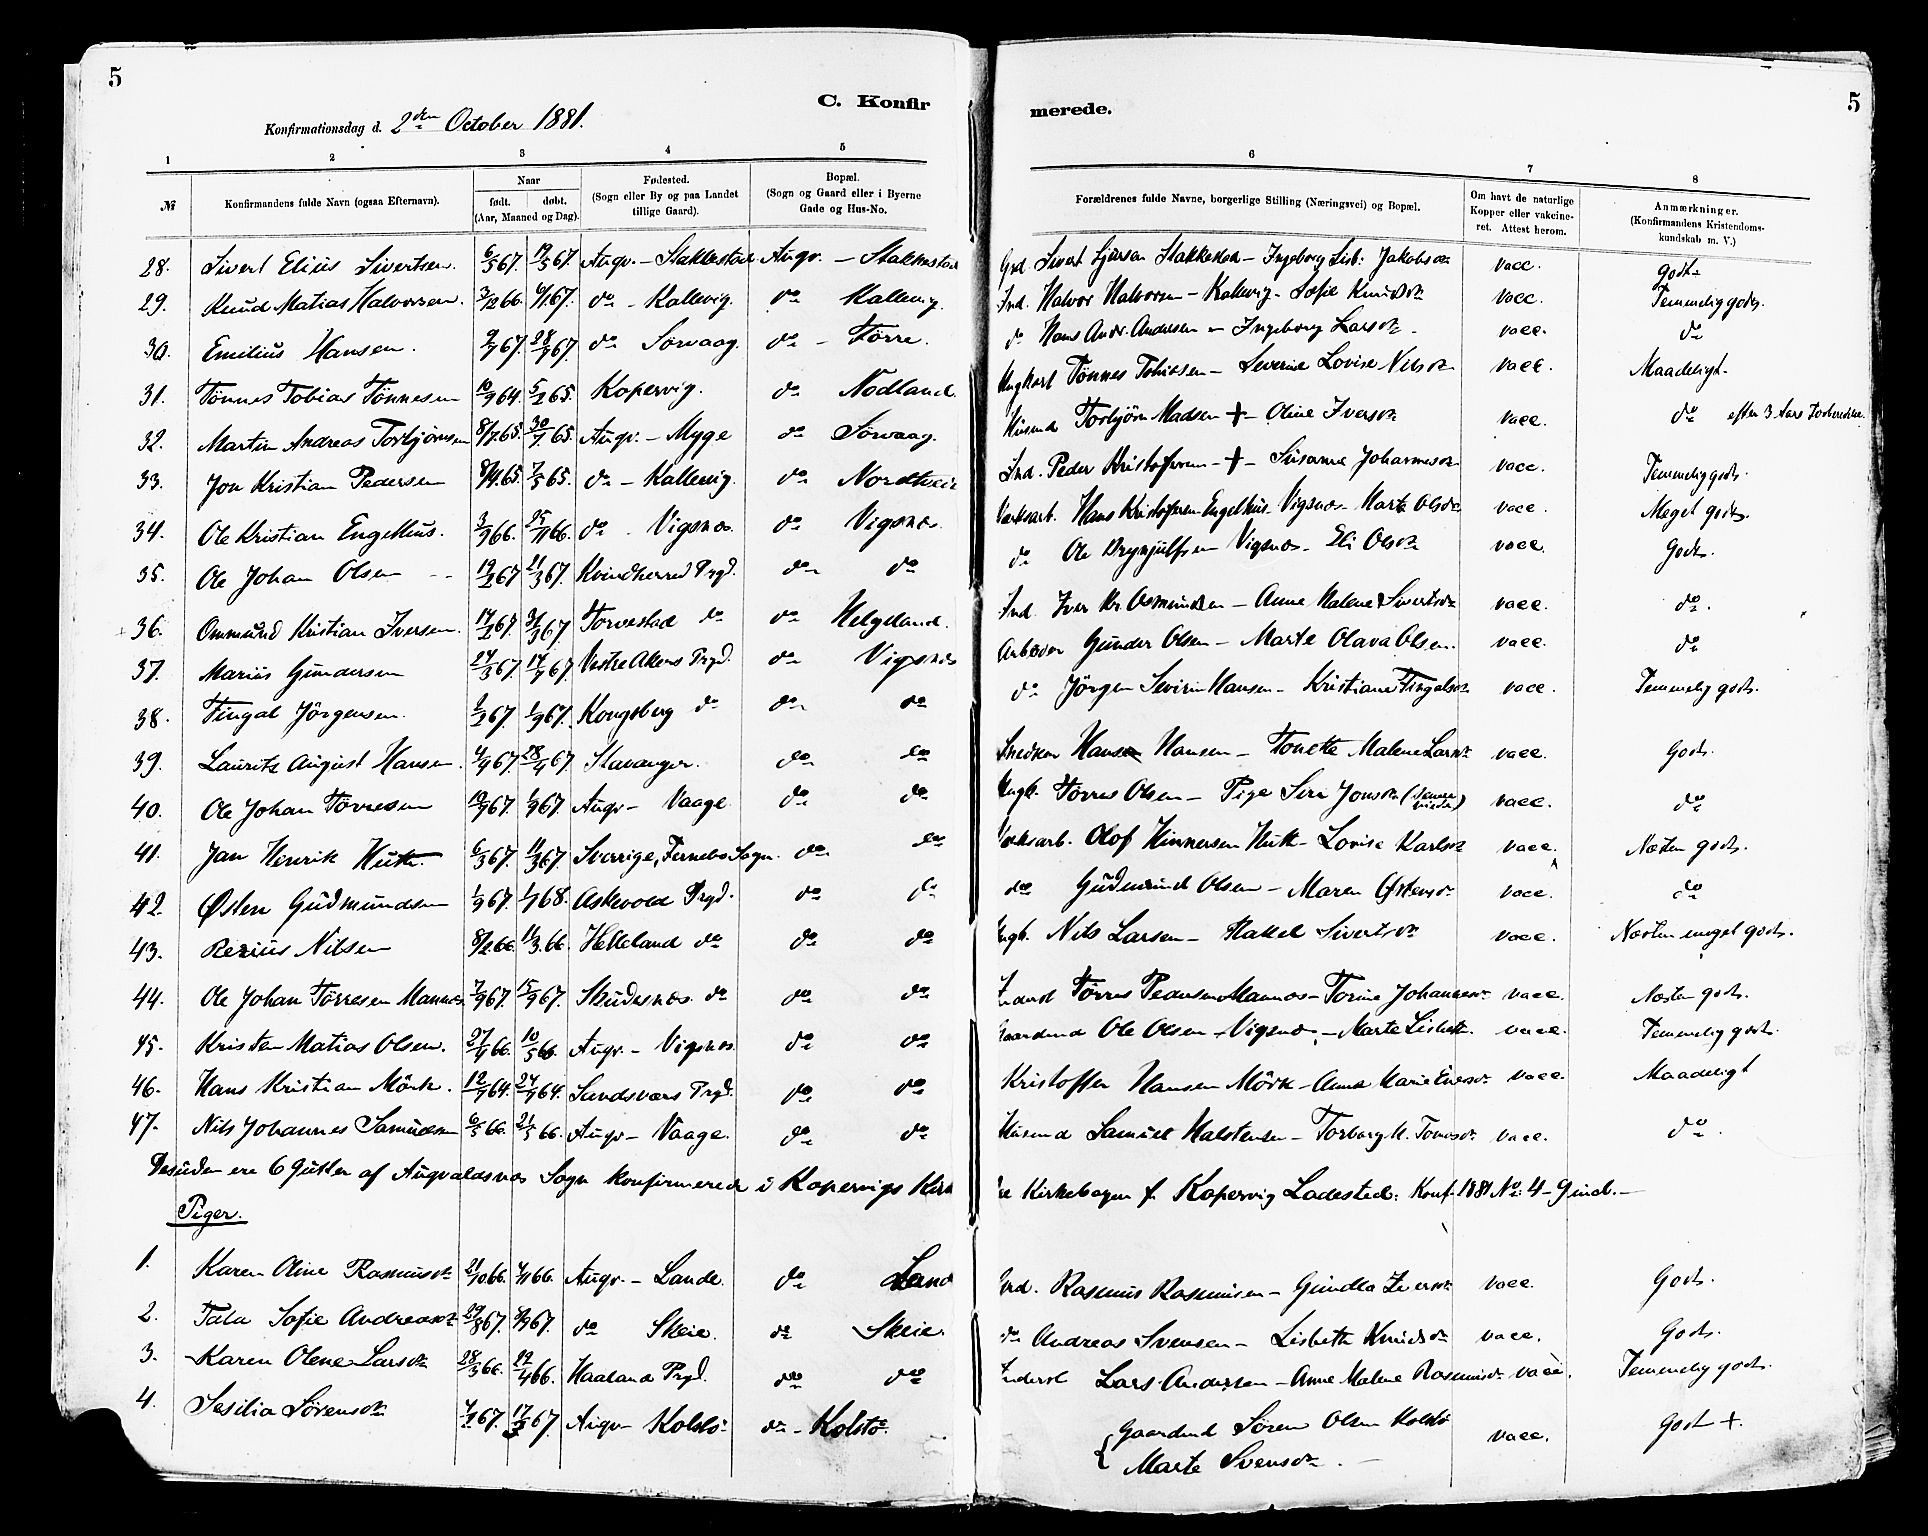 5
C. Konfir
merede.
5
Konfirmationsdag d. 2den October 1881.
1 2 3 4 5 6 7 8
№ Konfirmandens fulde Navn (ogsaa Efternavn). Naar født. døbt. (Aar, Maaned og Dag). Fødested. (Sogn eller By og paa Landet tillige Gaard). Bopæl. (Sogn og Gaard eller i Byerne Gade og Hus-No. Forældrenes fulde Navne, borgerlige Stilling (Næringsvei) og Bopæl. Om havt de naturlige Kopper eller vakcineret. Attest herom. Anmærkninger. (Konfirmandens Kristendomskundskab m. V.)
28. Sivert Elius Sivertsen. 6/5 67. 19/5 67. Augv. - Stakkestad Augv. - Stakkestad Grd. Sivert Sjursen Stakkestad - Ingeborg Lisb. Jakobsdr vacc. godt.
29. Knud Matias Halvorsen. 3/12 66. 6/1 67. do - Kallevig. do Kallevig. Ind. Halvor Halvorsen - Kallevig - Sofie Knudsdr vacc. Temmelig godt.
30. Emilius Hansen. 9/7 67. 28/7 67. do Sørvaag. do - Tørre. do Hans Andr. Andersen - Ingeborg Larsdr. vacc. do
31. Tønnes Tobias Tønnesen 10/9 64. 5/2 65. Kopervig. do Nodland. Ungkarl Tønnes Tobiasen - Severine Lovise Nilsdr vacc. Maadeligt.
32. Martin Andreas Torbjørnsen 8/7 65. 30/7 65. Augv. - Myge do Sørvaag. Husmd Torbjørn Madsen + - Oline Iversdr vacc. do efter 3 Aars Forberedelse.
33. Jon Kristian Pedersen 8/4 65. 7/5 65. do - Kallevig. do Nordtveit Ind. Peder Kristoffersen - + - Susanne Johannesdr vacc. Temmelig godt.
34. Ole Kristian Engelhus. 3/9 66. 25/11 66. do - Vigsnæs. do Vigsnæs. Værksarb. Hans Kristoffersen Engelhus Vigsnæs - Marte Olsdr vacc. Meget godt.
35. Ole Johan Olsen 19/2 67 21/3 67. Kvindherred Prgd. do do do Ole Brynjulfsen Vigsnæs - Eli Olsdr vacc. Godt.
36. Ommund Kristian Iversen. 17/2 67. 31/3 67 Torvestad do do Helgeland. Ind. Iver Kr. Osmundsen - Anne Malene Sivertsdr vacc. do.
37. Marius Gundersen 24/3 67. 14/7 67 Vestre Akers Prgd. do Vigsnæs Arbeider Gunder Olsen - Marte Olava Olsen. vacc. do
38. Tingal Jörgensen. 2/2 67. 1/9 67. Kongsberg do do do do Jörgen Sevirin Hansen - Kristiane Tingalsdr vacc. Temmelig godt.
39. Lauritz August Hansen. 4/4 67. 28/4 67 Stavanger. do do Snedker Hans Hansen - Tonette Malene Larsdr vacc. Godt.
40. Ole Johan Tørresen 19/7 67. 1/9 67. Augv - Vaage. do do Ungk. Tørres Olsen - Pige Siri Jonsdr vacc. do
41. Jan Henrik Huth. 6/3 67. 11/3 67. Sverrige, Fernebo Sogn. do do Værksarb. Olof Hinnersen Huth - Lovise Karlsdr vacc. Næsten godt.
42. Østen Gudmundsen 1/9 67. 1/1 68. Askevold Prgd. do do do Gudmund Olsen - Maren Østensdr vacc. do
43. Rezius Nilsen 8/2 66. 11/3 66. Helleland do do do Ungk. Nils Larsen - Rakel Sivertsdr vacc. Næsten meget godt.
44. Ole Johan Tørresen Mannæs. 7/9 67. 15/9 67. Skudesnæs do do do Inderst Tørres Pedersen Mannæs - Torine Johannesdr vacc. Næsten godt.
45. Kristen Matias Olsen. 27/4 66. 10/5 66. Augv. - Vigsnæs. do do Gaardmd Ole Olsen - Vigsnæs - Marte Lisbeth. vacc. Temmelig godt.
46. Hans Kristian Mörk. 12/7 64. 24/7 64. Sandsværs Prgd. do do Kristoffer Hansen Mörk - Anne Marie Enersdr. vacc. Maadeligt
47. Nils Johannes Samuelsen 6/5 66. 21/5 66. Augv - Vaage. do do Husmd Samuel Halstensen - Torborg M. Tomasdr vacc. do.
Desuden ere 6 Gutter af Augvaldsnæs Sogn konfirmerede i Kopervigs Kirke Kirkebogen f. Kopervig Ladested: Konf. 1881 No: 4 - 9 incl. -
Piger.
1. Karen Oline Rasmusdr 21/10 66. 4/11 66. Augv. - Lande. do Land Ind. Rasmus Rasmusen - Gundla Iversdr vacc. Godt.
2. Tala Sofie Andreasdr 29/8 67. 8/9 67. do Skeie. do Skeie. do Andreas Svensen - Lisbeth Knudsdr vacc. Godt.
3. Karen Olene Larsdr 28/3 66. 22/4 66. Haaland Prgd. do do Inderst Lars Andersen - Anne Malene Rasmusdr vacc. Temmelig godt.
4. Sesilia Sörensdr 4/2 67. 17/3 67. Augv - Kolstö do - Kolstö. Gaardmd Sören Olsen Kolstö vacc. Godt +.
Marte Svensdr. -